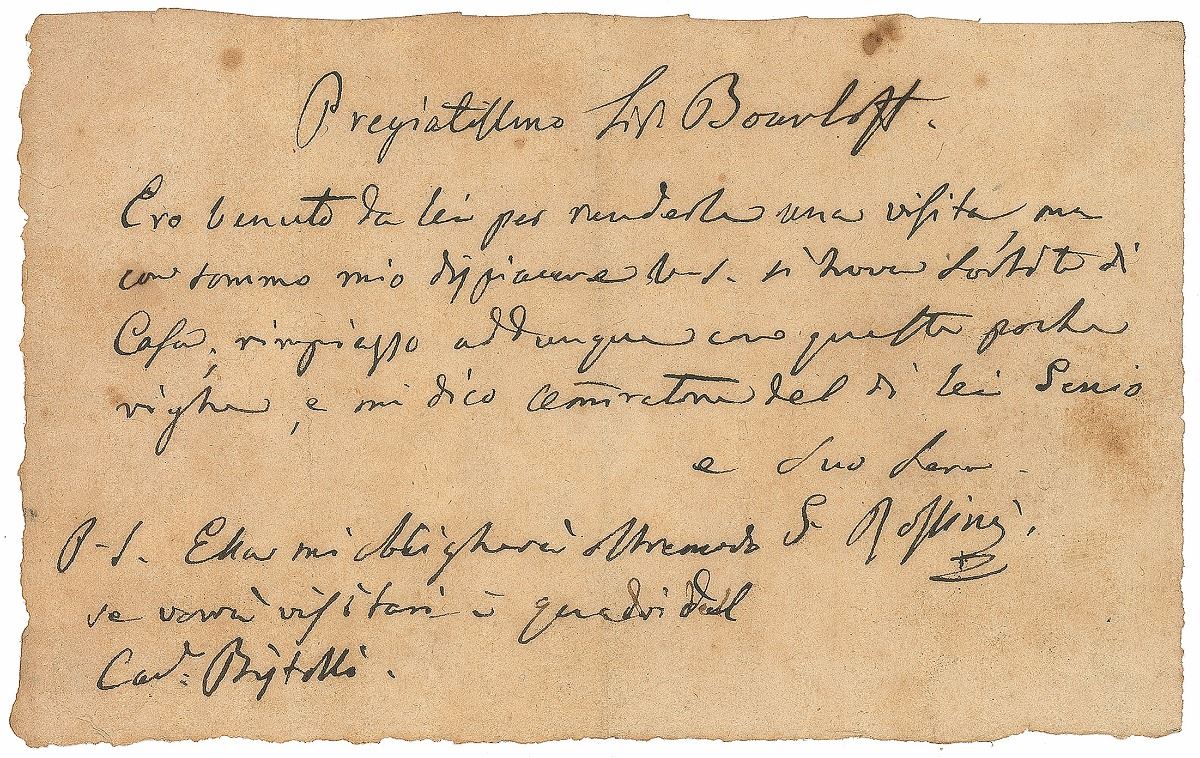 Pregiatissimo Sigr Bourlost.
Ero venuto da lei per renderle una visita, ma
con sommo mio dispiacere V-S. si trova sortito di
Casa; rimpiazzo addunque con queste poche
righe, e mi dico ammiratore del di lei Genio
e Suo Serv
P-S. Ella mi obbligherà oltremodo G. Rossini.
se vorrà visitare i quadri del
Cav.